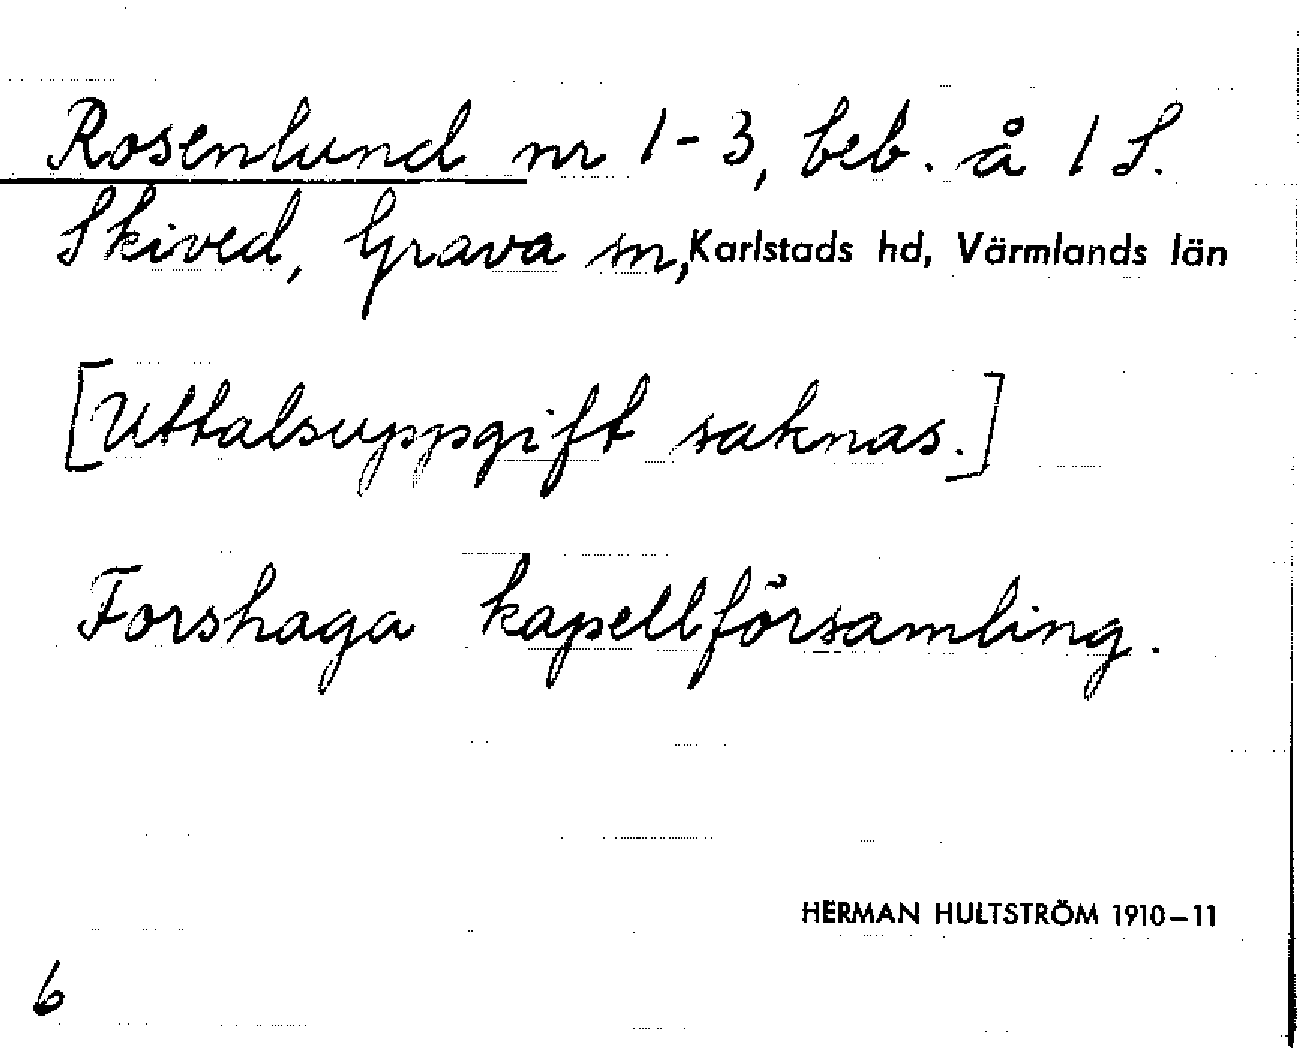 Rosenlund nr 1-3, beb. å 1 S.
Skived, Grava sn, Karlstads hd, Värmlands län
[Uttalsuppgift saknas.]
Forshaga kapellförsamling.
HERMAN HULTSTRÖM 1910–11
6